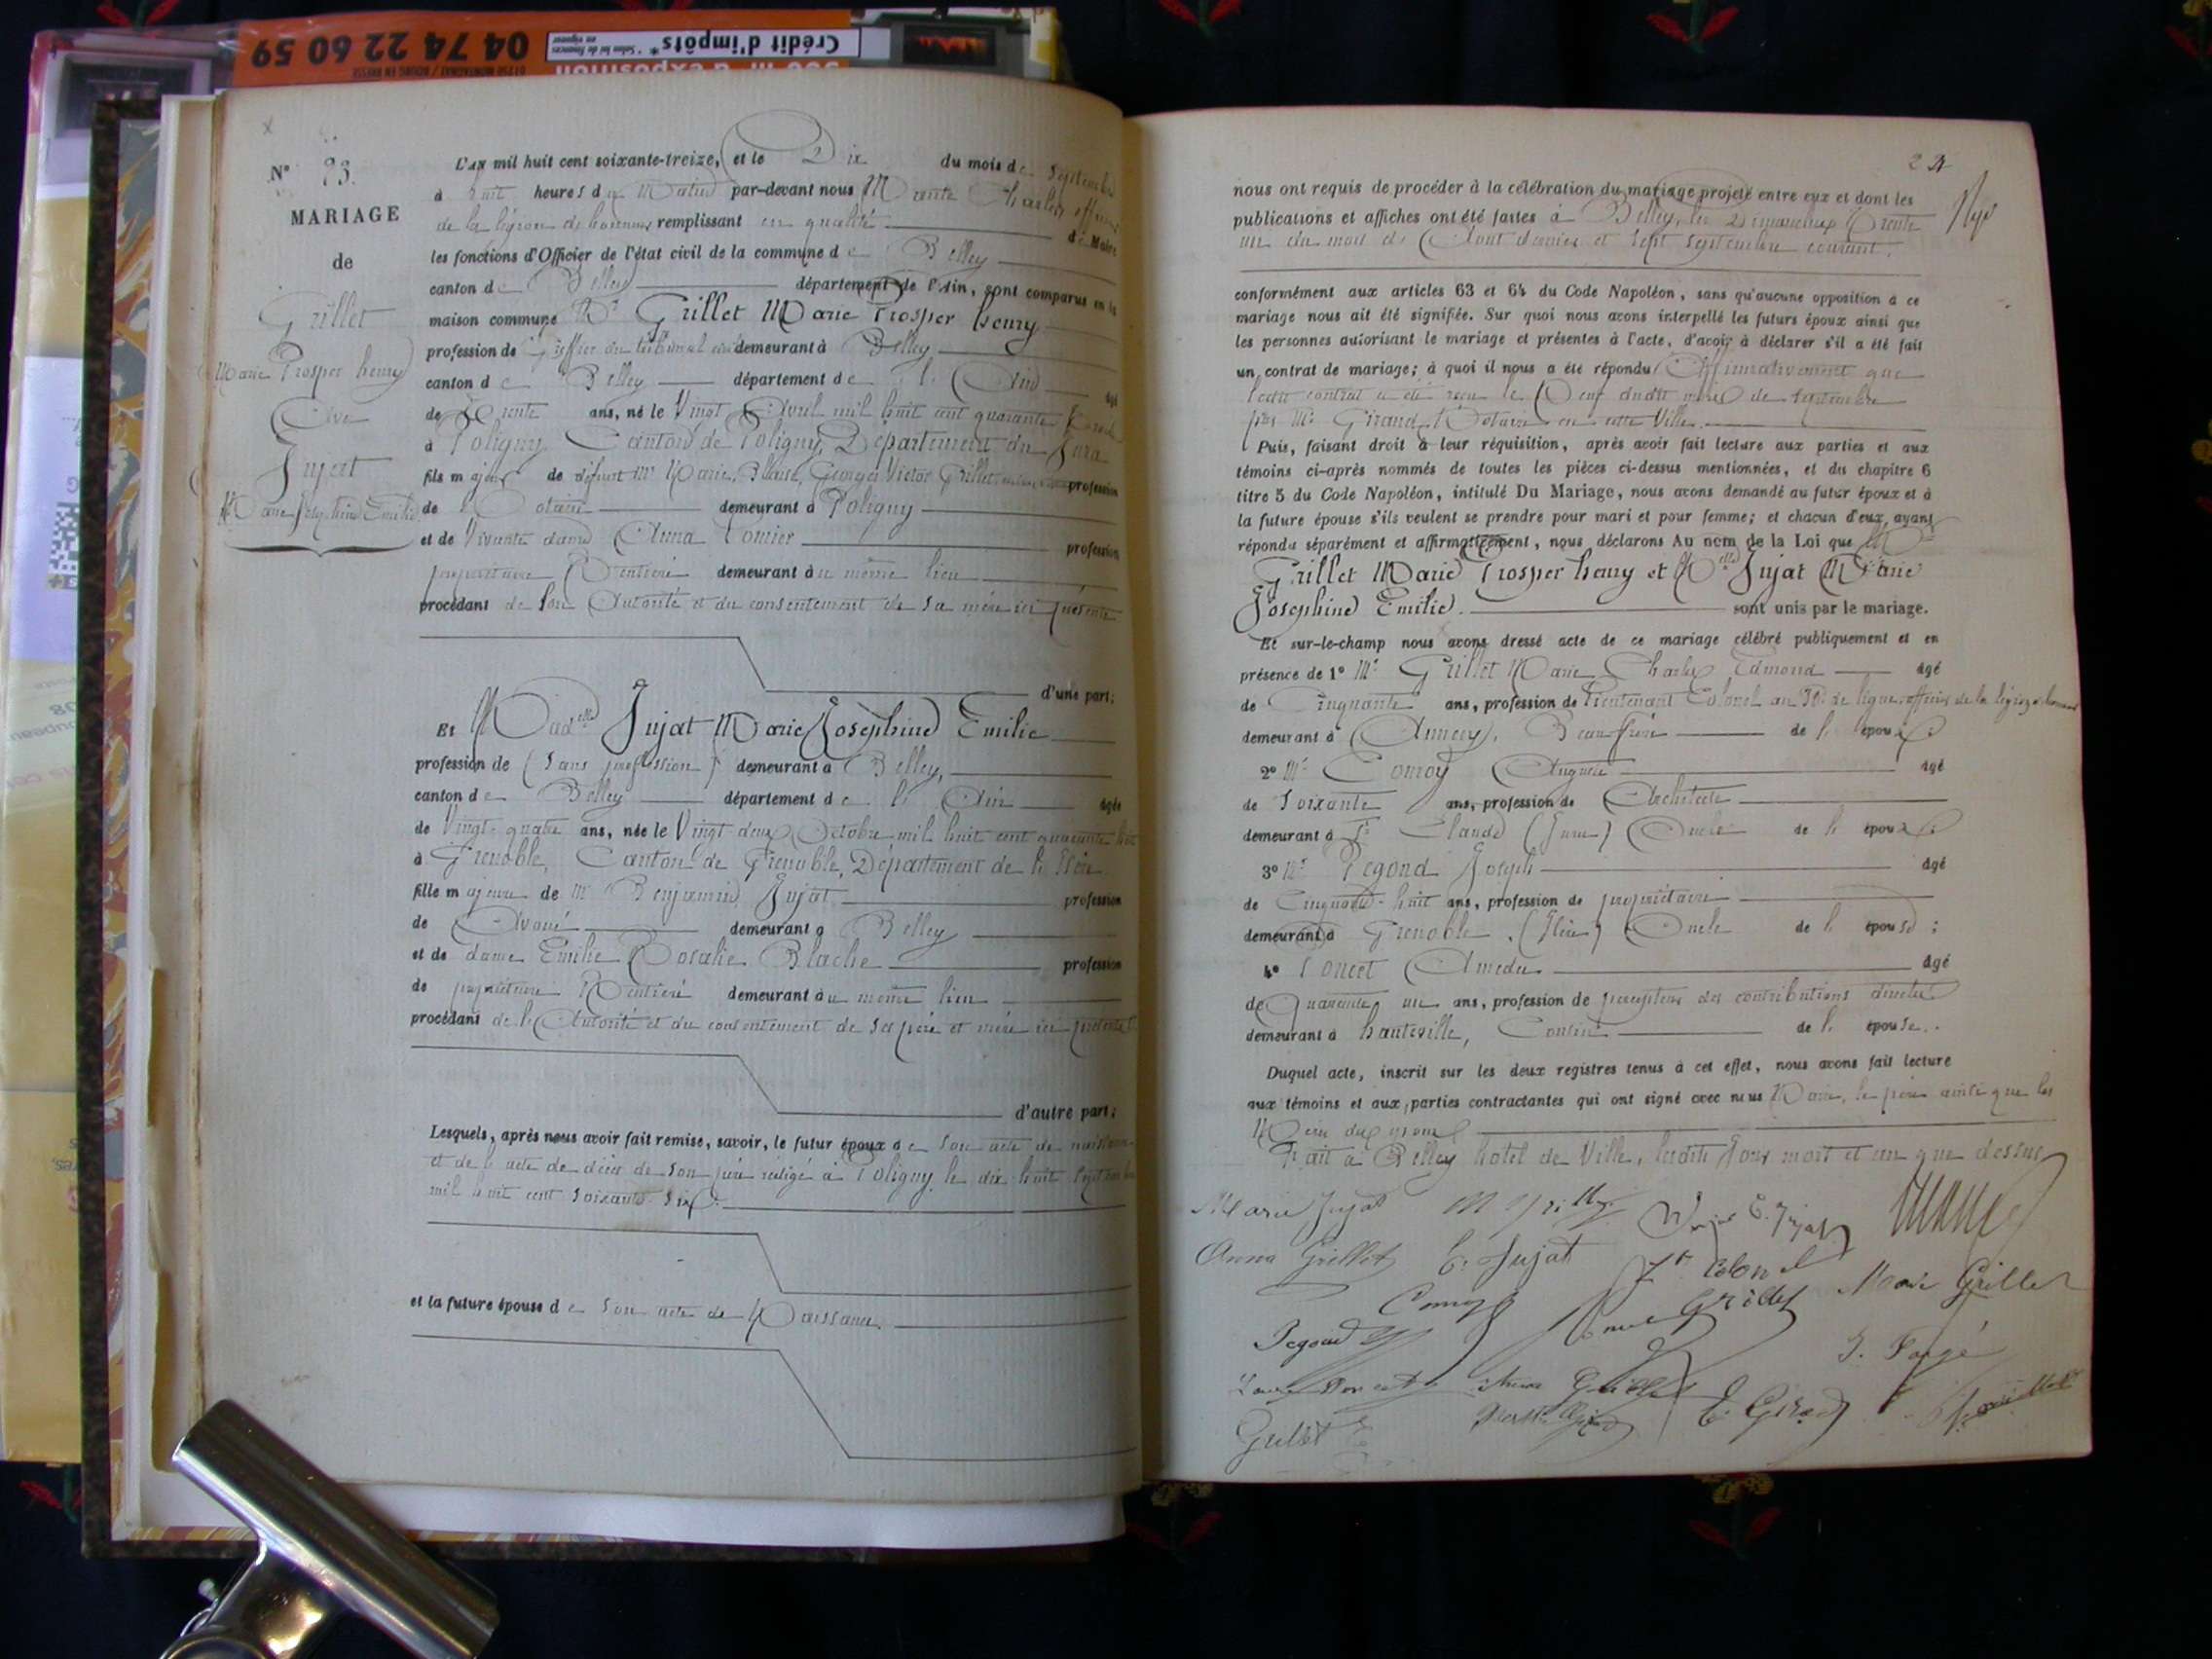 04 74 22 60 59
01250 MONTAGNAT / BOURG EN BRESSE
Crédit d'impôts*
* Selon loi de finances en vigueur
d'exposition
N° 23.
MARIAGE
de
Grillet
Marie Prosper henry
Avec
Jujat
Marie Joséphine Emilie
L'an mil huit cent soixante-treize, et le Dix du mois de Septembre
à huit heures du Matin par-devant nous Charles officier
de la légion de honneur remplissant en qualité de Maire
les fonctions d'Officier de l'état civil de la commune de Belley
canton de Belley département de l'Ain, sont comparus en la
maison commune Mr Grillet Marie Prosper henry
profession de Greffier du tribunal civil demeurant à Belley
canton de Belley département de l'Ain âgé
de Trente ans, né le Vingt Avril mil huit cent quarante trois
à Poligny, Canton de Poligny, Département du Jura
fils majeur de défunt Mr Marie, Blaise, Georges Victor Grillet profession
de Notaire demeurant à Poligny
et de Vivante dame Anna Comier profession
propriétaire Rentière demeurant au même lieu
procédant de son Autorité et du consentement de sa mère ici présente
d'une part;
Et Madelle Jujat Marie Joséphine Emilie
profession de (sans profession) demeurant à Belley,
canton de Belley département de l'Ain âgée
de Vingt-quatre ans, née le Vingt deux Octobre mil huit cent quarante huit
à Grenoble, Canton de Grenoble, Département de l'Isère
fille majeure de Mr Benjamin Jujat profession
de Avoué demeurant à Belley
et de dame Emilie Rosalie Blache profession
de propriétaire Rentière demeurant au même lieu
procédant de l'Autorité et du consentement de ses père et mère ici présents
d'autre part;
Lesquels, après nous avoir fait remise, savoir, le futur époux de son acte de naissance
et de l'acte de décès de son père rédigé à Poligny le dix huit Septembre
mil huit cent soixante-six.
et la future épouse de son acte de Naissance.
24
nous ont requis de procéder à la célébration du mariage projeté entre eux et dont les
publications et affiches ont été faites à Belley, les Dimanches Trente
un du mois de Août dernier et sept septembre courant.
conformément aux articles 63 et 64 du Code Napoléon, sans qu'aucune opposition à ce
mariage nous ait été signifiée. Sur quoi nous avons interpellé les futurs époux ainsi que
les personnes autorisant le mariage et présentes à l'acte, d'avoir à déclarer s'il a été fait
un contrat de mariage; à quoi il nous a été répondu Affirmativement que
ledit contrat a été reçu le Neuf dudit mois de Septembre
par Me Giraud, Notaire en cette Ville.
Puis, faisant droit à leur réquisition, après avoir fait lecture aux parties et aux
témoins ci-après nommés de toutes les pièces ci-dessus mentionnées, et du chapitre 6
titre 5 du Code Napoléon, intitulé Du Mariage, nous avons demandé au futur époux et à
la future épouse s'ils veulent se prendre pour mari et pour femme; et chacun d'eux ayant
répondu séparément et affirmativement, nous déclarons Au nom de la Loi que Mr
Grillet Marie Prosper henry et Melle Jujat Marie
Joséphine Emilie. sont unis par le mariage.
Et sur-le-champ nous avons dressé acte de ce mariage célébré publiquement et en
présence de 1° Mr Grillet Marie Charles Edmond âgé
de Cinquante ans, profession de Lieutenant Colonel au 30e de ligne, officier de la légion d'honneur
demeurant à Annecy, Beau frère de l'époux
2° Mr Comoy Auguste âgé
de Soixante ans, profession de Architecte
demeurant à St Claude (Jura) Oncle de l'époux
3° Mr Pegoud Joseph âgé
de Cinquante-huit ans, profession de propriétaire
demeurant à Grenoble. (Isère) Oncle de l'épouse;
4° Poncet Amédée âgé
de Quarante un ans, profession de percepteur des contributions directes
demeurant à hauteville, Cousin de l'épouse.
Duquel acte, inscrit sur les deux registres tenus à cet effet, nous avons fait lecture
aux témoins et aux parties contractantes qui ont signé avec nous Maire, le père ainsi que les
Mère des époux
Fait à Belley hotel de Ville, lesdits Jour mois et an que dessus
Marie Jujat
Anna Grillet
E. Jujat
Lt Colonel
Grillet
Marie Grillet
Comoy
Pegoud
J. Fargé
E. Girod
Grillet